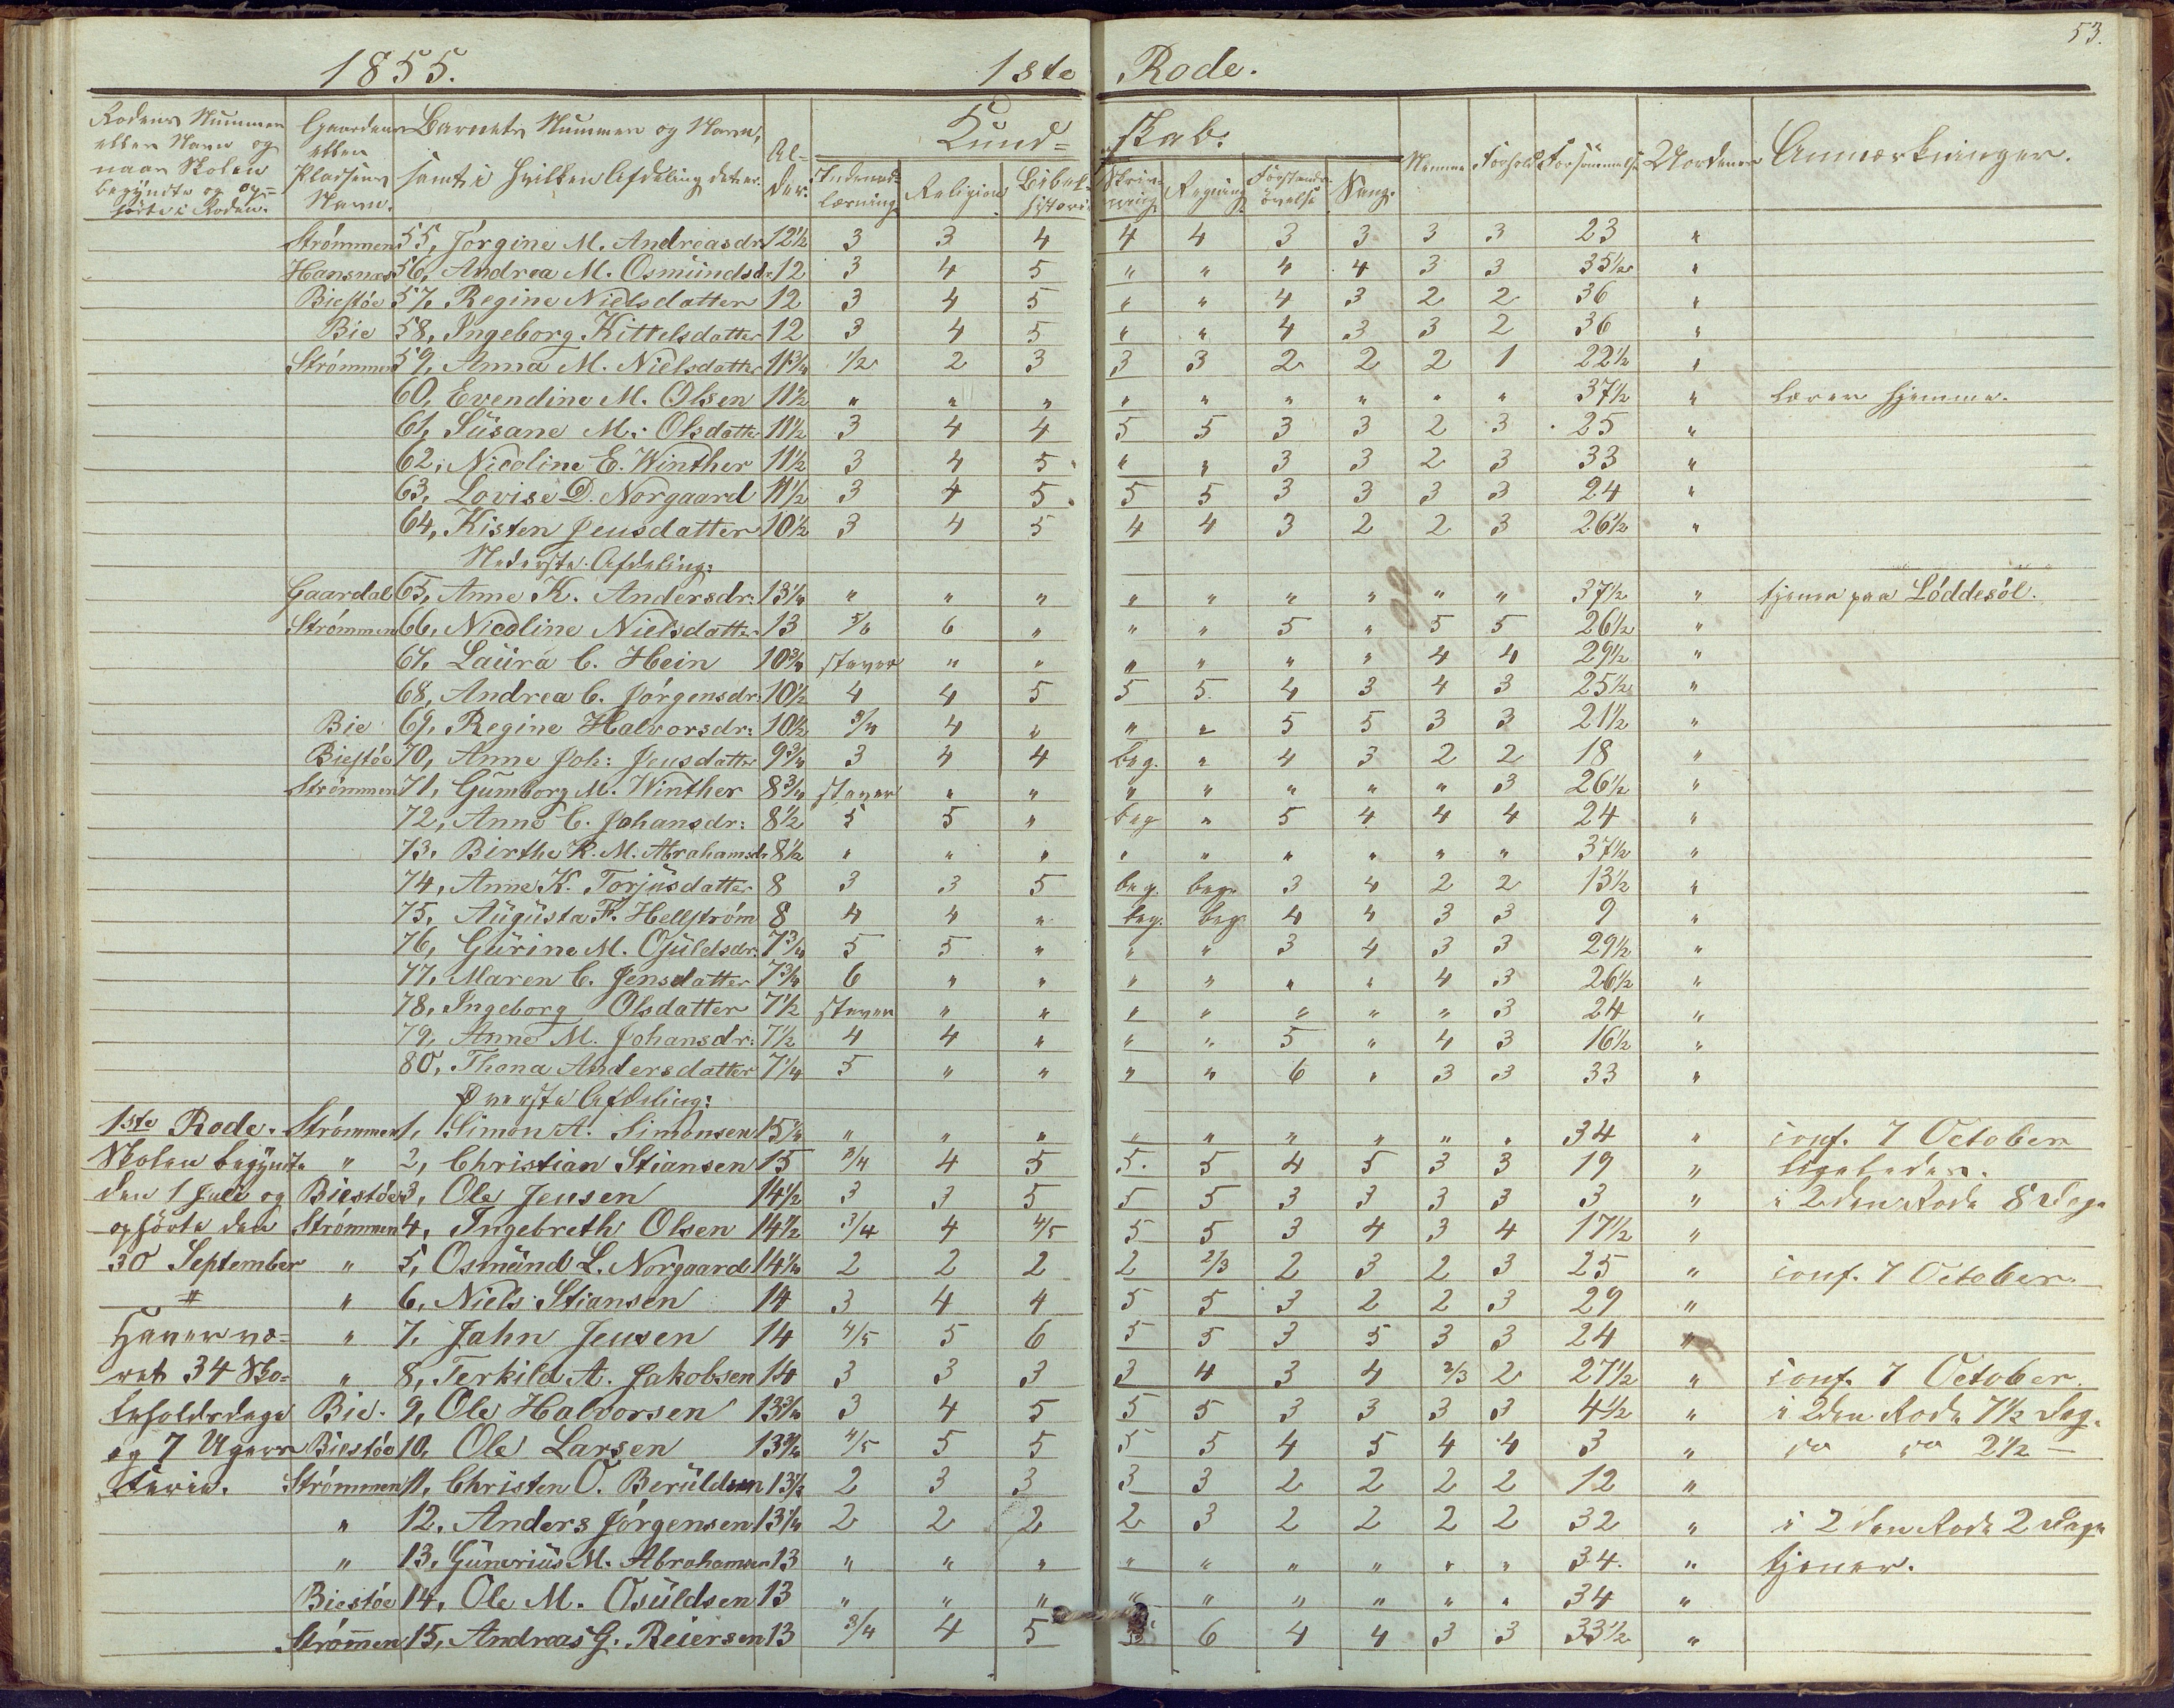 53.
1855. 1ste Rode.
Rodens Nummer eller Navn og naar Skolen begyndte og ophørte i Roden. Gaardens eller Pladsens Navn. Barnets Nummer og Navn, samt i hvilken Afdeling det er. Alder. Kundskab. Nemme Forhold Forsømmelse Anmærkninger.
Indenadlæsning Religion Bibelhistorie Skrivning Regning Forstandsøvelse Sang.
Strømmen 55, Jørgine M. Andreasdr 12½ 3 3 4 4 4 3 3 3 3 23 "
Hansnæs 56, Andrea M. Osmundsdr 12 3 4 5 " " 4 4 3 3 35½ "
Biestøe 57, Regine Nielsdatter 12 3 4 5 " " 4 3 2 2 36 "
Bie 58, Ingeborg Kittelsdatter 12 3 4 5 " " 4 3 3 2 36 "
Strømmen 59, Anna M. Nielsdatter 11¾ ½ 2 3 3 3 2 2 2 1 22½ "
60, Evendine M. Olsen 11½ " " " " " " " " " 37½ " lærer hjemme.
61, Susane M. Olsdatter 11½ 3 4 4 5 5 3 3 2 3 25 "
62, Nicoline E. Winther 11½ 3 4 5 " " 3 3 2 3 33 "
63, Lovise D. Norgaard 11½ 3 4 5 5 5 3 3 3 3 24 "
64, Kisten Jensdatter 10½ 3 4 5 4 4 3 2 2 3 26½ "
Nederste Afdeling:
Gaardal 65, Anne K. Andersdr: 13¼ " " " " " " " " " 37½ " tjener paa Løddesøl.
Strømmen 66, Nicoline Nielsdatter 13 5/6 6 " " " 5 " 5 5 26½ "
67, Laura C. Hein 10¾ staver " " " " " " 4 4 29½ "
68, Andrea C. Jørgensdr: 10½ 4 4 5 5 5 4 3 4 3 25½ "
Bie 69, Regine Halvorsdr: 10½ ¾ 4 " " " 5 5 3 3 21½ "
Biestøe 70, Anne Joh: Jensdatter 9¾ 3 4 4 beg. " 4 3 2 2 18 "
Strømmen 71, Gumborg M. Winther 8¾ staver " " " " " " " 3 26½ "
72, Anne C. Johansdr: 8½ 5 5 " beg " 5 4 4 4 24 "
73, Birthe K. M. Abrahamsdr 8½ " " " " " " " " " 37½ "
74, Anne K. Torjusdatter 8 3 3 5 beg. beg. 3 4 2 2 13½ "
75, Augusta F. Hellstrøm 8 4 4 " beg. beg. 4 4 3 3 9 "
76, Gurine M. Osuldsdr: 7¾ 5 5 " " " 3 4 3 3 29½ "
77, Maren C. Jensdatter 7¾ 6 " " " " " " 4 3 26½ "
78, Ingeborg Olsdatter 7½ staver " " " " " " " 3 24 "
79, Anne M. Johansdr: 7½ 4 4 " " " 5 " 4 3 16½ "
80, Thona Andersdatter 7¼ 5 " " " " 6 " 3 3 33 "
Øverste Afdeling:
1ste Rode. Strømmen 1, Simon A. Simonsen 15¼ " " " " " " " " " 34 " conf. 7 October
Skolen begyndte " 2, Christian Stiansen 15 ¾ 4 5 5. 5 4 5 3 3 19 " ligeledes.
den 1 Juli og Biestøe 3, Ole Jensen 14½ 3 3 5 5 5 3 3 3 3 3 " i 2den Rode 8 Dage
ophørte den Strømmen 4, Ingebreth Olsen 14½ ¾ 4 4/5 5 5 3 4 3 4 17½ "
30 September " 5, Osmund L. Norgaard 14¼ 2 2 2 2 2/3 2 3 2 3 25 " conf. 7 October
" 6, Niels Stiansen 14 3 4 4 5 5 3 2 2 3 29 "
Haver væ= " 7, Jahn Jensen 14 4/5 5 6 5 5 3 5 3 3 24 "
ret 34 Sko= " 8, Terkild A. Jakobsen 14 3 3 3 3 4 3 4 2/3 2 27½ " conf. 7 October.
leholdsdage Bie. 9, Ole Halvorsen 13¾ 3 4 5 5 5 3 3 3 3 4½ " i 2den Rode 7½ Dag.
og 7 Ugers Biestøe 10, Ole Larsen 13¾ 4/5 5 5 5 5 4 5 4 4 3 " do do 2½ —
Ferie. Strømmen 11, Christen O. Beruldsen 13½ 2 3 3 3 3 2 2 2 2 12 "
" 12. Anders Jørgensen 13¼ 2 2 2 2 3 2 2 2 2 32 " i 2den Rode 2 Dage
" 13. Gunerius M. Abrahamsen 13 " " " " " " " " " 34. " tjener.
Biestøe 14, Ole M. Osuldsen 13 " " " " " " " " " 34 "
Strømmen 15, Andreas G. Reiersen 13 ¾ 4 5 5 6 4 4 3 3 33½ "